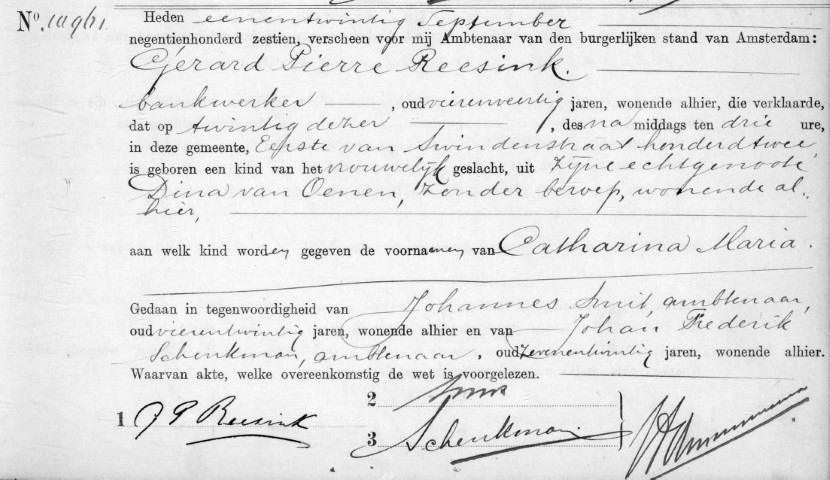 No. 10961. Heden eenentwintig September
negentienhonderd zestien, verscheen voor mij Ambtenaar van den burgerlijken stand van Amsterdam:
Gerard Pierre Reesink.
bankwerker , oud vierenveertig jaren, wonende alhier, die verklaarde,
dat op twintig dezer , des na middags ten drie ure,
in deze gemeente, Eerste van Swindenstraat honderd twee
is geboren een kind van het vrouwelijk geslacht, uit zijne echtgenoote
Dina van Oenen, zonder beroep, wonende al-
hier,
aan welk kind worden gegeven de voornamen van Catharina Maria.
Gedaan in tegenwoordigheid van Johannes Smit, ambtenaar,
oud vierentwintig jaren, wonende alhier en van Johan Frederik
Schenkman, ambtenaar. oud zevenentwintig jaren, wonende alhier.
Waarvan akte, welke overeenkomstig de wet is voorgelezen.
1 Reesink
2 Smit
3 Schenkman